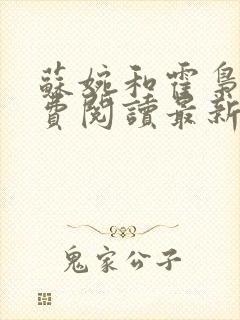 蘇婉和霍梟
費閱讀最新
鬼家公子